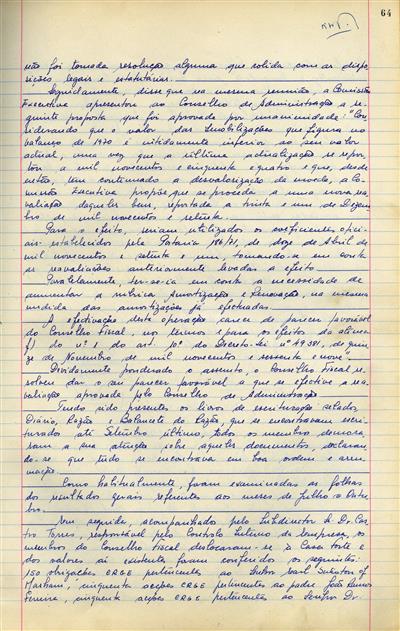 64
não foi tomada resolução alguma que colida com as dispo-
sições legais e estatutárias.
Seguidamente, disse que na mesma reunião, a Comissão
Executiva apresentou ao Conselho de Administração a se-
guinte proposta que foi aprovada por unanimidade: "Con-
siderando que o valor das Imobilizações que figura no
balanço de 1970 é nitidamente inferior ao seu valor
actual, uma vez que a última actualização se repor-
tou a mil novecentos e cinquenta e quatro e que, desde
então, tem continuado a desvalorização da moeda, a Co-
missão Executiva propõe que se proceda a uma nova rea-
valiação daqueles bens, reportada a trinta e um de Dezem-
bro de mil novecentos e setenta.
Para o efeito, seriam utilizados os coeficientes ofici-
ais estabelecidos pela Portaria 186/71, de doze de Abril de
mil novecentos e setenta e um, tomando-se em conta
as reavaliações anteriormente levadas a efeito.
Paralelamente, ter-se-ia em conta a necessidade de
aumentar a rubrica Amortização e Renovação, na mesma
medida das amortizações já efectuadas.
A efectivação desta operação carece de parecer favorável
do Conselho Fiscal, nos termos e para os efeitos da alínea
f) do nº 1 do artº 10º do Decreto-Lei nº 49 381, de quin-
ze de Novembro de mil novecentos e sessenta e nove".
Devidamente ponderado o assunto, o Conselho Fiscal re-
solveu dar o seu parecer favorável a que se efective a rea-
valiação aprovada pelo Conselho de Administração.
Tendo sido presentes os livros de escrituração selados,
Diário, Razão e Balancete do Razão, que se encontravam escri-
turados até Setembro último, todos os membros demora-
ram a sua atenção sobre aqueles documentos, declaran-
do-se que tudo se encontrava em boa ordem e arru-
mação.
Como habitualmente, foram examinadas as folhas
dos resultados gerais referentes aos meses de Julho a Outu-
bro.
Em seguida, acompanhados pelo Subdirector Sr. Dr. Cas-
tro Torres, responsável pelo Controlo Interno da Empresa, os
membros do Conselho Fiscal deslocaram-se à Casa Forte e
dos valores aí existentes foram conferidos os seguintes:
150 obrigações CRGE pertencentes ao Senhor
cinquenta acções CRGE pertencentes ao padre João Ramos
Ferreira, cinquenta acções CRGE pertencentes ao Senhor Dr.